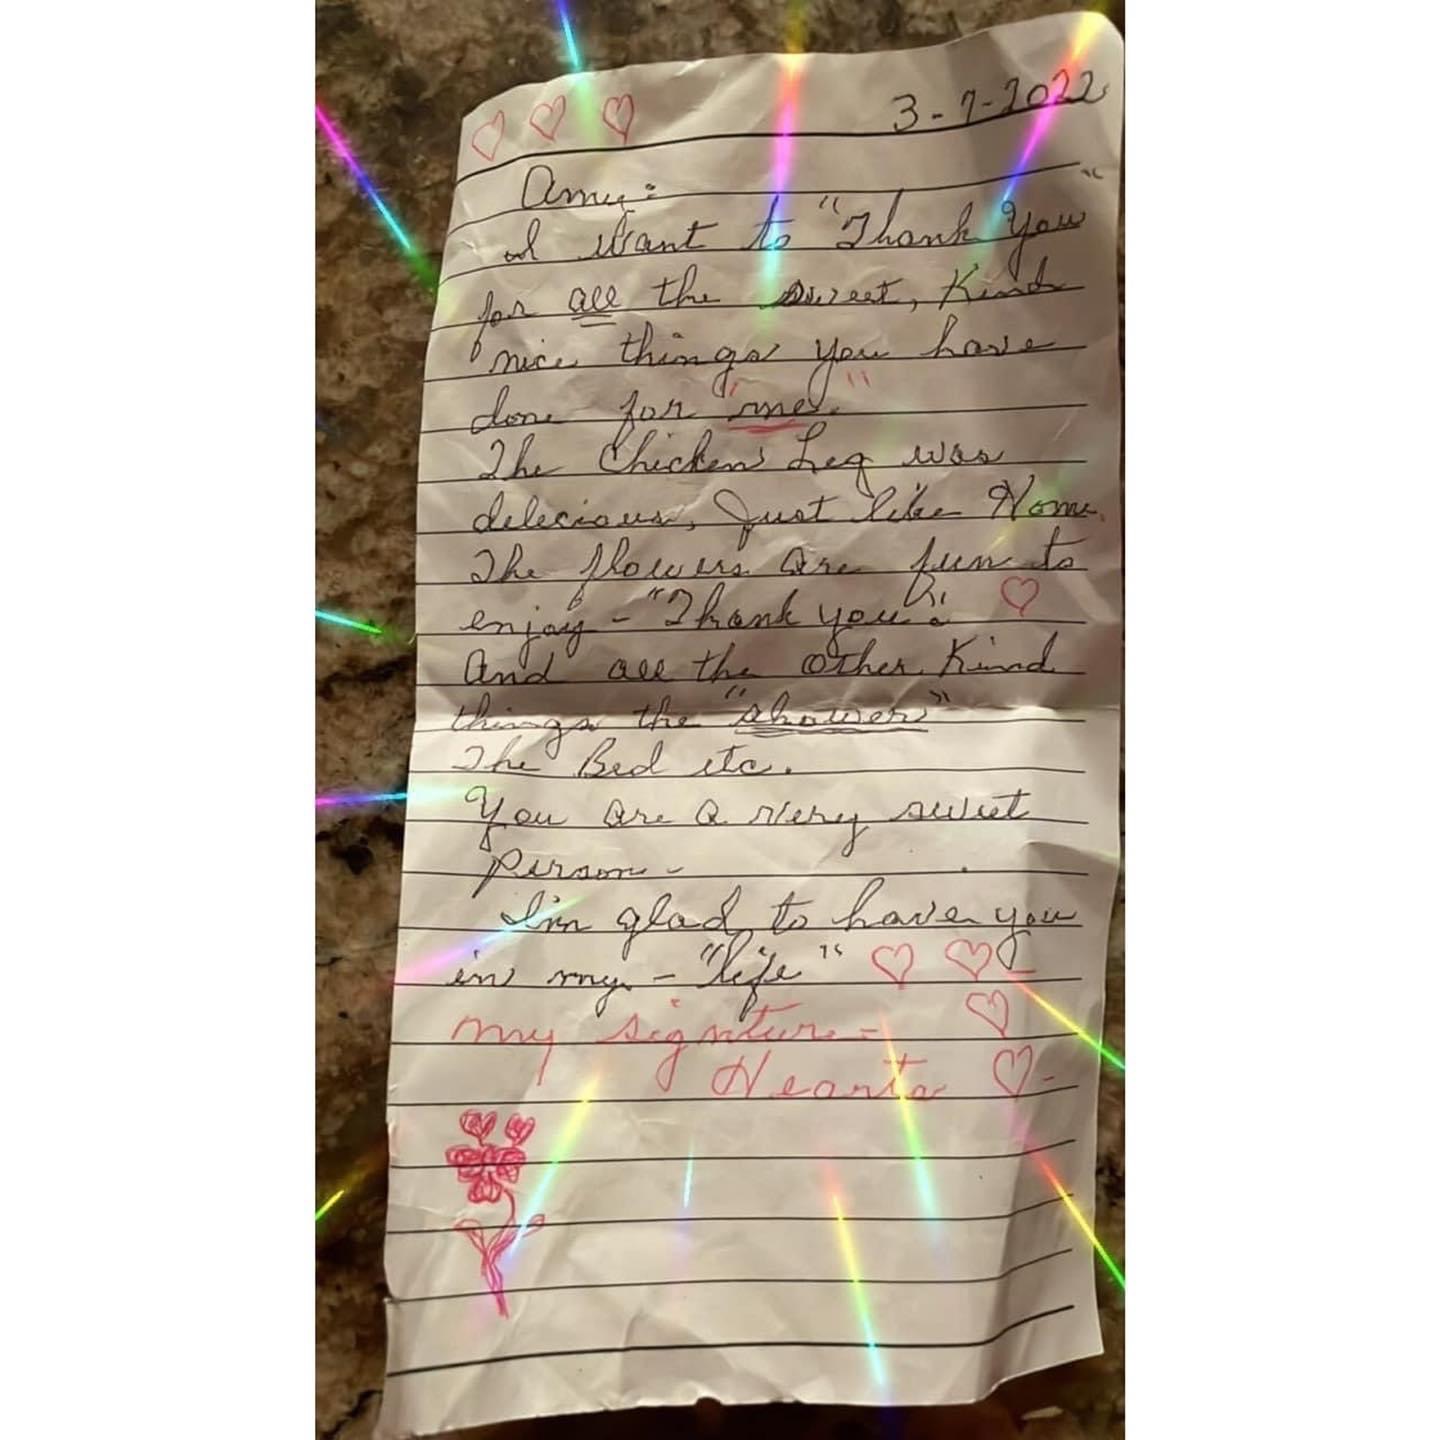 3-7-2022
Amy:
I want to "Thank You"
for all the sweet, Kind
nice things you have
done for "me."
The Chicken Leg was
delecious, Just like Home.
The flowers are fun to
enjoy - "Thank you".
And all the other Kind
things the "shower"
The Bed etc.
You are a very sweet
person -
I'm glad to have you
in my - "life"
my signture -
Hearts -